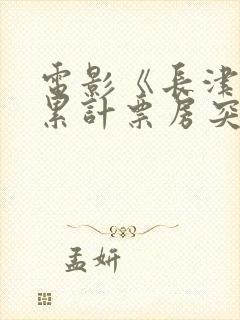 電影《長津
累計票房突
孟妍